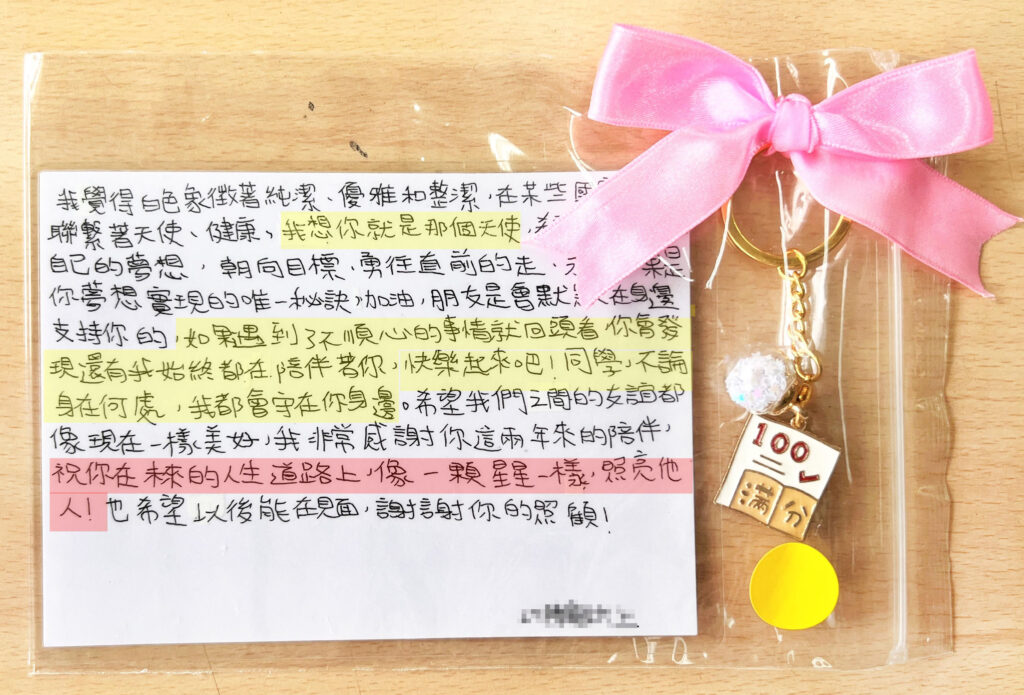 我覺得白色象徵著純潔、優雅和整潔,在某些
聯繫著天使、健康,我想你就是那個天使,
自己的夢想,朝向目標,勇往直前的走,
你夢想實現的唯一秘訣,加油,朋友是會默 在身邊
支持你的,如果遇到了不順心的事情就回頭看,你會發
現還有我始終都在陪伴著你,快樂起來吧!同學,不論
身在何處,我都會守在你身邊。希望我們之間的友誼都
像現在一樣美好,我非常感謝你這兩年來的陪伴,
祝你在未來的人生道路上,像一顆星星一樣,照亮他
人!也希望以後能在見面,謝謝你的照顧!
100
滿分